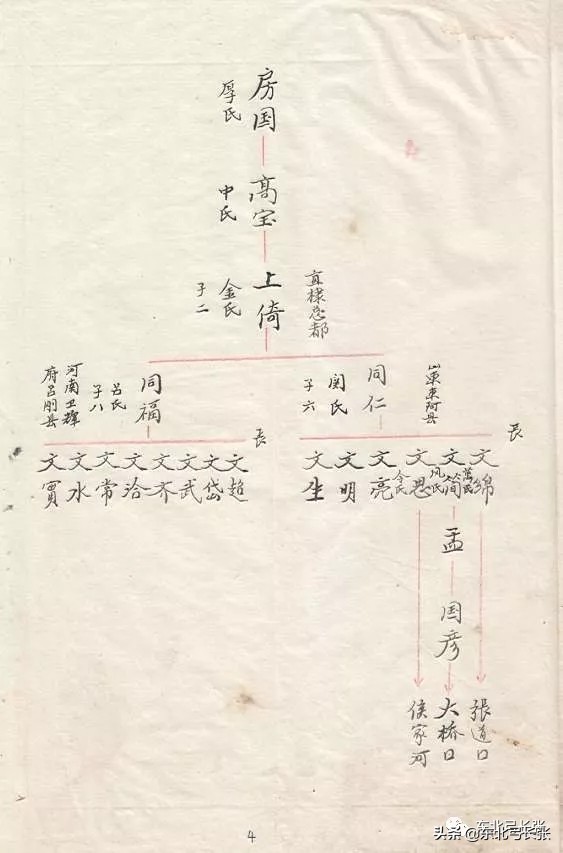 房国
厚氏
高宝
申氏
上倚
金氏
子二
直棣总都
同仁
闵氏
子六
山東東阿县
同福
吕氏
子八
河南卫辉
府吕刚县
長
文綿
萬氏
文簡
风氏
文思
仝氏
文亮
文明
文生
長
文超
文岱
文武
文齐
文治
文常
文水
文實
孟
国彦
張道口
大桥口
侯家河
4
东北弓长张
头条@东北弓长张